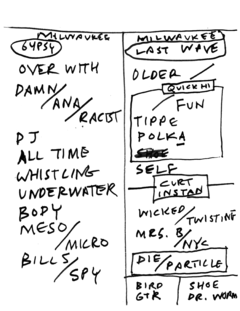 MILWAUKEE
GYPSY
OVER WITH
DAMN/
ANA/
RACIST
PJ
ALL TIME
WHISTLING
UNDERWATER
BODY
MESO/
MICRO
BILLS/
SPY
MILWAUKEE
LAST WAVE
OLDER /
QUICK HI
FUN
TIPPE
POLKA
SELF
CURT
INSTAN
WICKED/
TWISTING
MRS. B/
NYC
DIE/
PARTICLE
BIRD
GTR
SHOE
DR. WORM